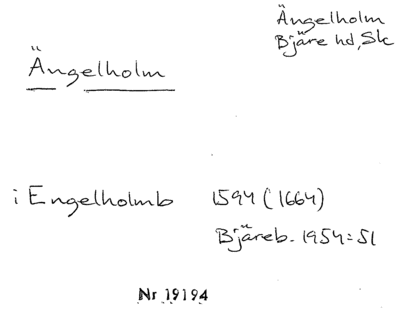 Ängelholm
Bjäre hd, Sk
Ängelholm
i Engelholmb 1594 (1664)
Bjäreb. 1954:51
Nr 19194